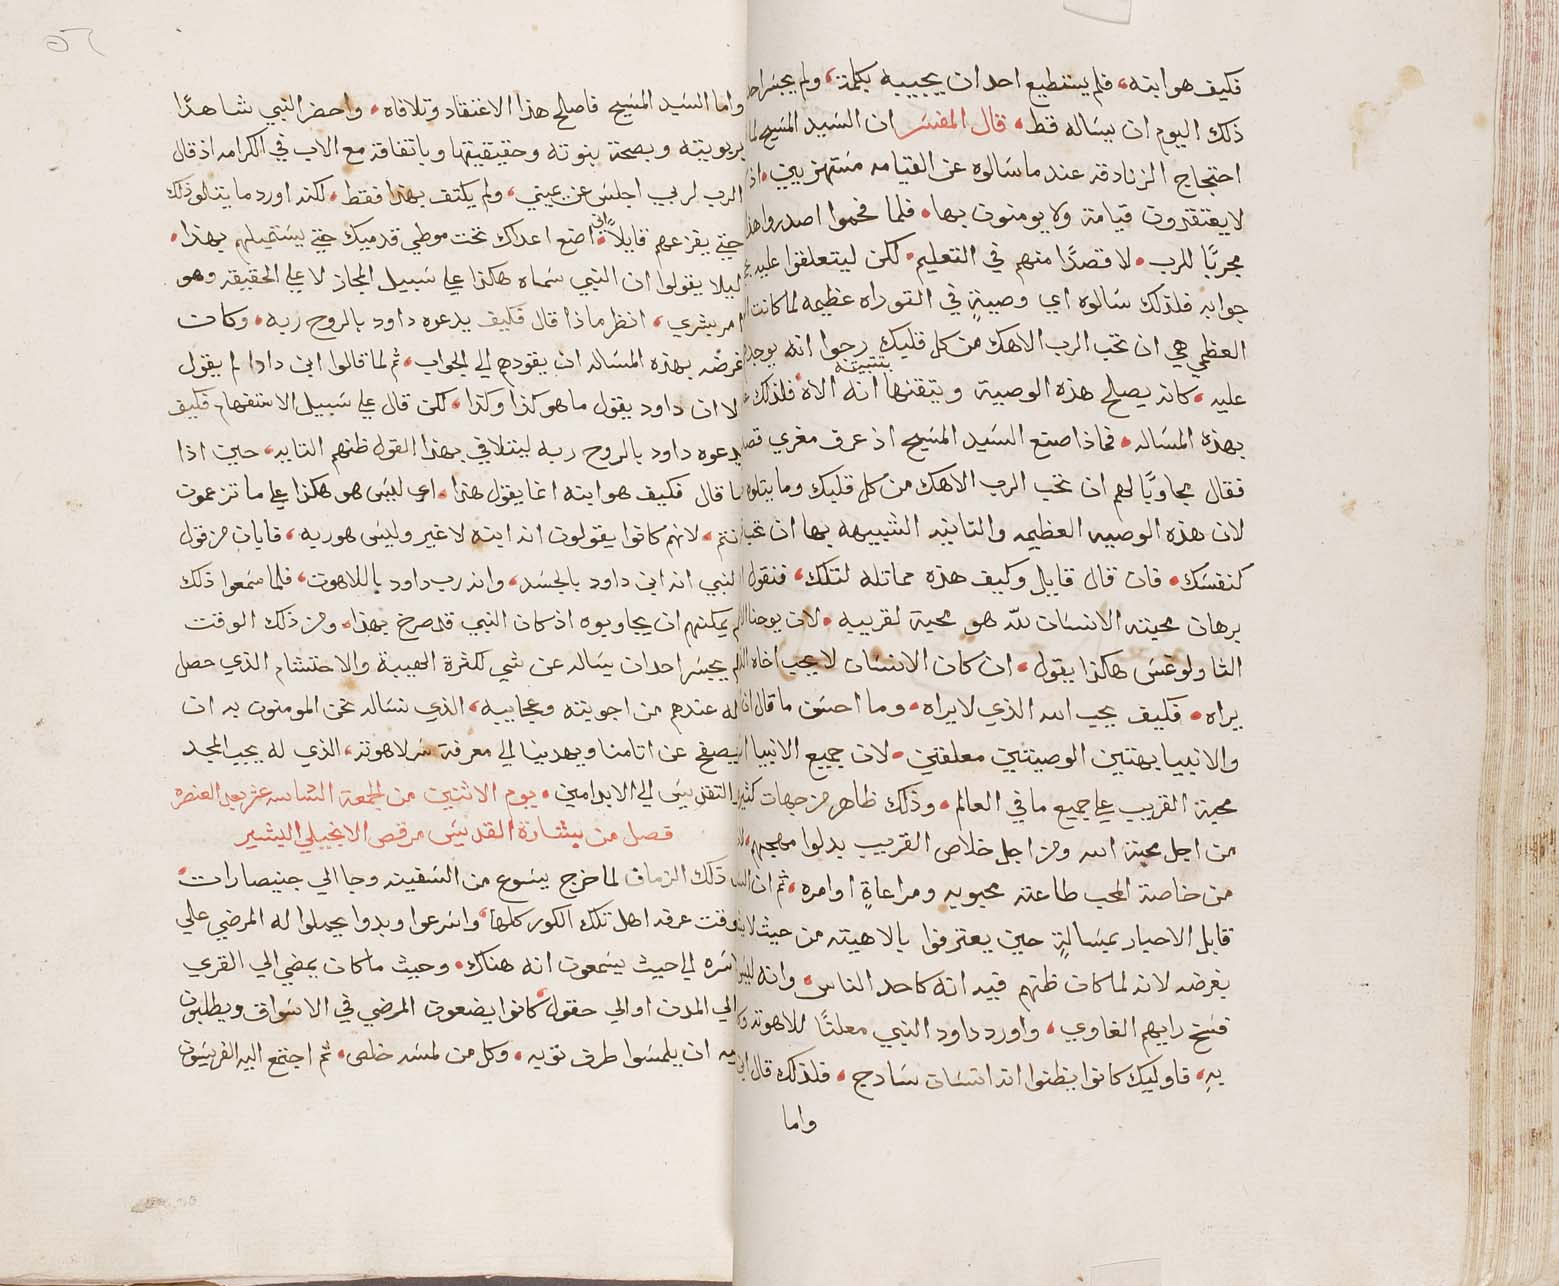 فكيف هو ابنه، فلم يستطيع احد ان يجيبه بكلمة، ولم يجسر احد
ذلك اليوم ان يساله قط. قال المفسر ان السيد المسيح لما
احتجاج الزنادقه عند ما سالوه عن القيامه مستهزيين. اذ
لا يعتقدون قيامة ولا يومنون بها. فلما فحموا اصدروا هذا
مجربًا للرب. لا قصدًا منهم في التعليم. لكن ليتعلقوا عليه
جوابه فلذلك سالوه اي وصيةٍ في التوراه عظيمه لما كانت
العظمي هي ان تحب الرب الاهك من كل قلبك رجوا انه يوجد
عليه، كانه يصلح هذه الوصية ويتيقنها انه الاه فلذلك
بهذه المساله. فماذا صنع السيد المسيح اذ عرف مغزي قصد
فقال مجاوبًا لهم ان تحب الرب الاهك من كل قلبك وما يتلوه
لان هذه الوصيه العظيمه والثانيه الشبيهه بها ان تحب
كنفسك. فان قال قايل وكيف هذه مماثله لتلك، فنقول
برهان محبته الانسان لله هو محبة لقريبه. لان يوحنا
الثاولوغس هكذا يقول. ان كان الانسان لا يحب اخاه
يراه. فكيف يحب الله الذي لا يراه. وما احسن ما قال ان
والانبيا بهتين الوصيتين معلقتين. لان جميع الانبيا
محبة القريب علي جميع ما في العالم. وذلك ظاهر من جهات كثير
من اجل محبة الله ومن اجل خلاص القريب بدلوا مهجهم
من خاصة المحب طاعته محبوبه ومراعاةٍ اوامره، ثم ان
قابل الاحبار بمسالةٍ حين يعترفوا بالاهيته من حيث
بغرضه لانه لما كان ظنهم فيه انه كاحد الناس. وانه ليس
فسخ رايهم الغاوي، واورد داود النبي معلنًا للاهوته
به. فاوليك كانوا يظنوا انه انسان سادج، فلذلك قال
واما
واما السيد المسيح فاصلح هذا الاعتقاد وتلافاه. واحضر النبي شاهدًا
بربوبيته وبصحة بنوته وحقيقيتها وباتفاقه مع الاب في الكرامه اذ قال
الرب لربي اجلس عن يميني، ولم يكتف بهذا فقط. لكنه اورد ما يتلو ذلك
حتي يفزعهم قايلاً اني اضع اعداك تحت موطي قدميك حتي يستميلهم بهذا.
ليلا يقولوا ان النبي سماه هكذا علي سبيل المجاز لا علي الحقيقه وهو
امر بشري، انظر ماذا قال فكيف يدعوه داود بالروح ربه. وكان
غرضه بهذه المساله ان يقودهم الي الجواب. ثم لما قالوا ابن داوا لم يقول
لا ان داود يقول ما هو كذا وكذا. لكن قال علي سبيل الاستفهام فكيف
يدعوه داود بالروح ربه ليتلافي بهذا القول ظنهم التايه، حين اذا
ما قال فكيف هو ابنه انما يقول هذا. اي ليس هو هكذا علي ما تزعمون
انتم. لانهم كانوا يقولون انه ابنه لا غير وليس هو ربه، فابان من قول
النبي انه ابن داود بالجسد، وانه رب داود باللاهوت، فلما سمعوا ذلك
لم يمكنهم ان يجاوبوه اذ كان النبي قد صرح بهذا، ومن ذلك الوقت
لم يجسر احد ان يساله عن شي لكثرة الهيبة والاحتشام الذي حصل
له عندهم من اجوبته وعجايبه، الذي نساله نحن المومنون به ان
يصفح عن اثامنا ويهدينا الي معرفة سر لاهوته، الذي له يجب المجد
والتقديس الي الابد امين. يوم الاثنين من الجمعة السادسه عشر بعد العنصره
فصل من بشارة القديس مرقص الانجيلي البشير
ذلك الزمان لما خرج يسوع من السفينه وجا الي جنيصارات.
وقت عرفه اهل تلك الكور كلها، واسرعوا وبدوا يحملوا له المرضي علي
اسره الي حيث يسمعون انه هناك. وحيث ما كان يمضي الي القري
الي المدن او الي حقول كانوا يضعون المرضي في الاسواق ويطلبون
يه ان يلمسوا طرف ثوبه. وكل من لمسه خلص. ثم اجتمع اليه الفريسون